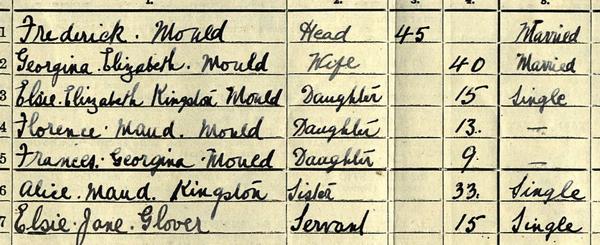 1. 2. 3. 4. 5.
1 Frederick. Mould Head 45 Married
2 Georgina. Elizabeth. Mould Wife 40 Married
3 Elsie. Elizabeth Kingston Mould Daughter 15 Single
4 Florence. Maud. Mould Daughter 13. —
5 Frances. Georgina. Mould Daughter 9. —
6 Alice. Maud. Kingston Sister 33. Single
7 Elsie. Jane. Glover Servant 15 Single